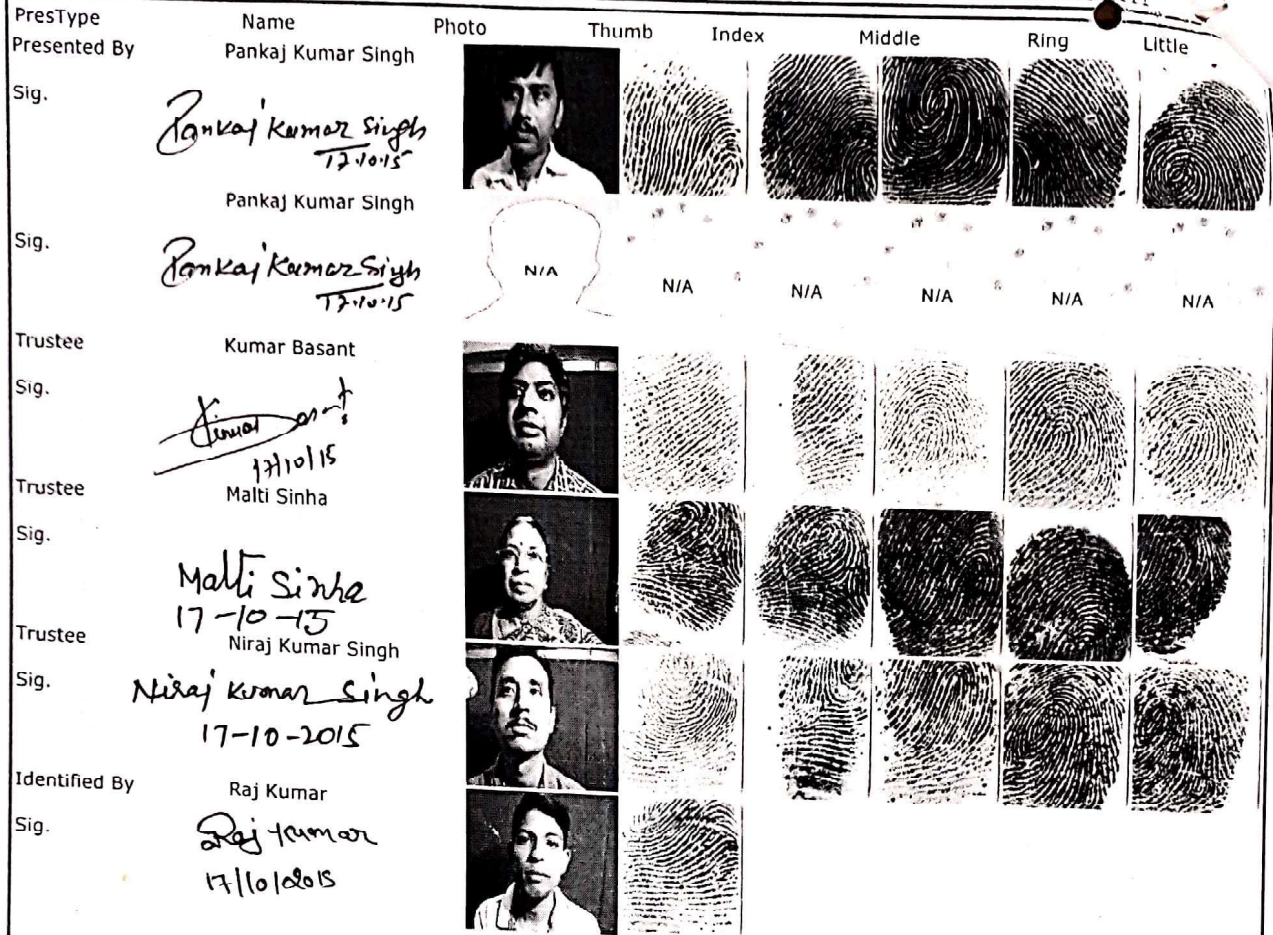 PresType Name Photo Thumb Index Middle Ring Little
Presented By Pankaj Kumar Singh
Sig.
Pankaj Kumar Singh
17.10.15
Pankaj Kumar Singh
Sig.
Pankaj Kumar Singh
17.10.15
N/A N/A N/A N/A N/A N/A
Trustee Kumar Basant
Sig.
Kumar Basant
17/10/15
Trustee Malti Sinha
Sig.
Malti Sinha
17-10-15
Trustee Niraj Kumar Singh
Sig.
Niraj Kumar Singh
17-10-2015
Identified By Raj Kumar
Sig.
Raj Kumar
17/10/2015